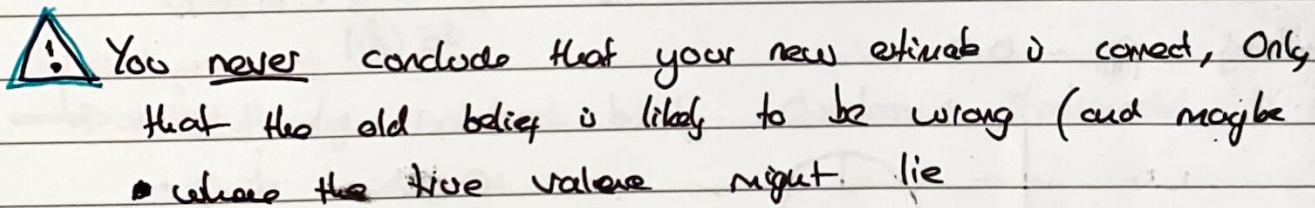 You never conclude that your new estimate is correct, Only
that the old belief is likely to be wrong (and maybe
where the true value might lie